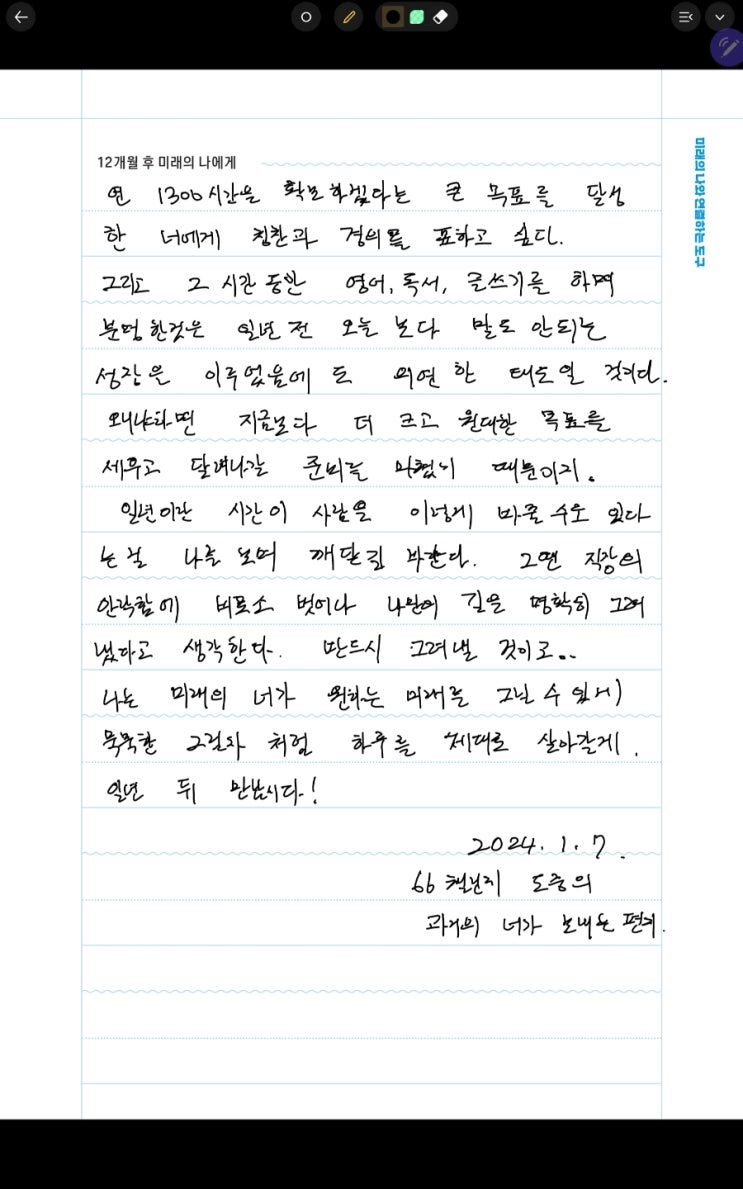 12개월 후 미래의 나에게
미래의 나와 연결하는 도구
연 1300시간을 확보하겠다는 큰 목표를 달성
한 너에게 칭찬과 경의를 표하고 싶다.
그리고 그 시간 동안 영어, 독서, 글쓰기를 하며
분명한것은 일년 전 오늘 보다 말도 안되는
성장을 이루었음에도 의연한 태도일 것이다.
왜냐하면 지금보다 더 크고 원대한 목표를
세우고 달려나갈 준비를 마쳤기 때문이지.
일년이란 시간이 사람을 이렇게 바꿀 수도 있다
는걸 나를 보며 깨닫길 바란다. 그땐 직장의
안락함에 비로소 벗어나 나만의 길을 명확히 그려
냈다고 생각한다. 반드시 그려낼 것이고..
나는 미래의 너가 원하는 미래를 그릴 수 있게
묵묵한 그림자 처럼 하루를 제대로 살아갈게.
일년 뒤 만납시다!
2024. 1. 7.
66 챌린지 도중의
과거의 너가 보내는 편지.